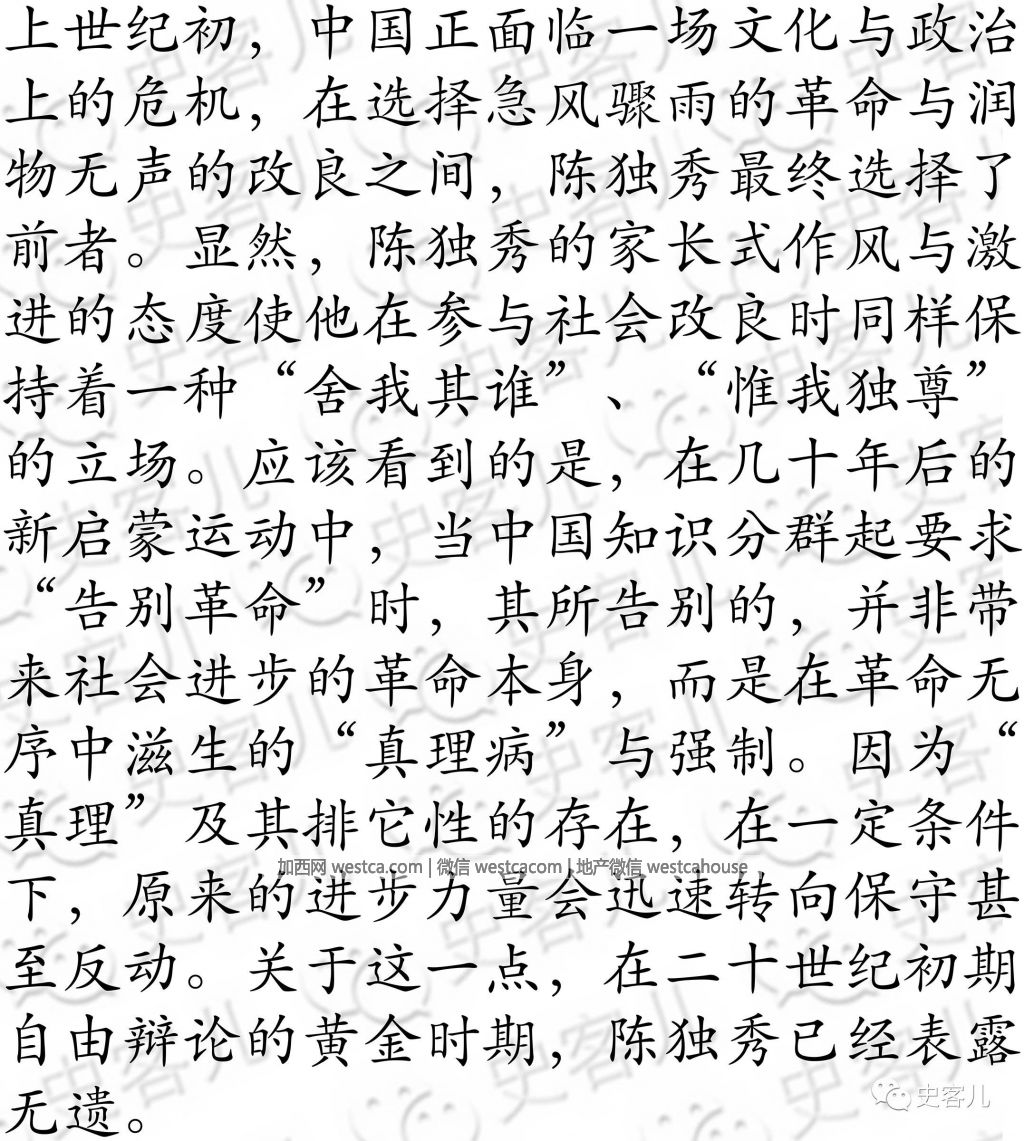 上世纪初，中国正面临一场文化与政治
上的危机，在选择急风骤雨的革命与润
物无声的改良之间，陈独秀最终选择了
前者。显然，陈独秀的家长式作风与激
进的态度使他在参与社会改良时同样保
持着一种“舍我其谁”、“惟我独尊”
的立场。应该看到的是，在几十年后的
新启蒙运动中，当中国知识分群起要求
“告别革命”时，其所告别的，并非带
来社会进步的革命本身，而是在革命无
序中滋生的“真理病”与强制。因为“
真理”及其排它性的存在，在一定条件
加西网 westca.com | 微信 westcacom | 地产微信 westcahouse
下，原来的进步力量会迅速转向保守甚
至反动。关于这一点，在二十世纪初期
自由辩论的黄金时期，陈独秀已经表露
无遗。
史客儿